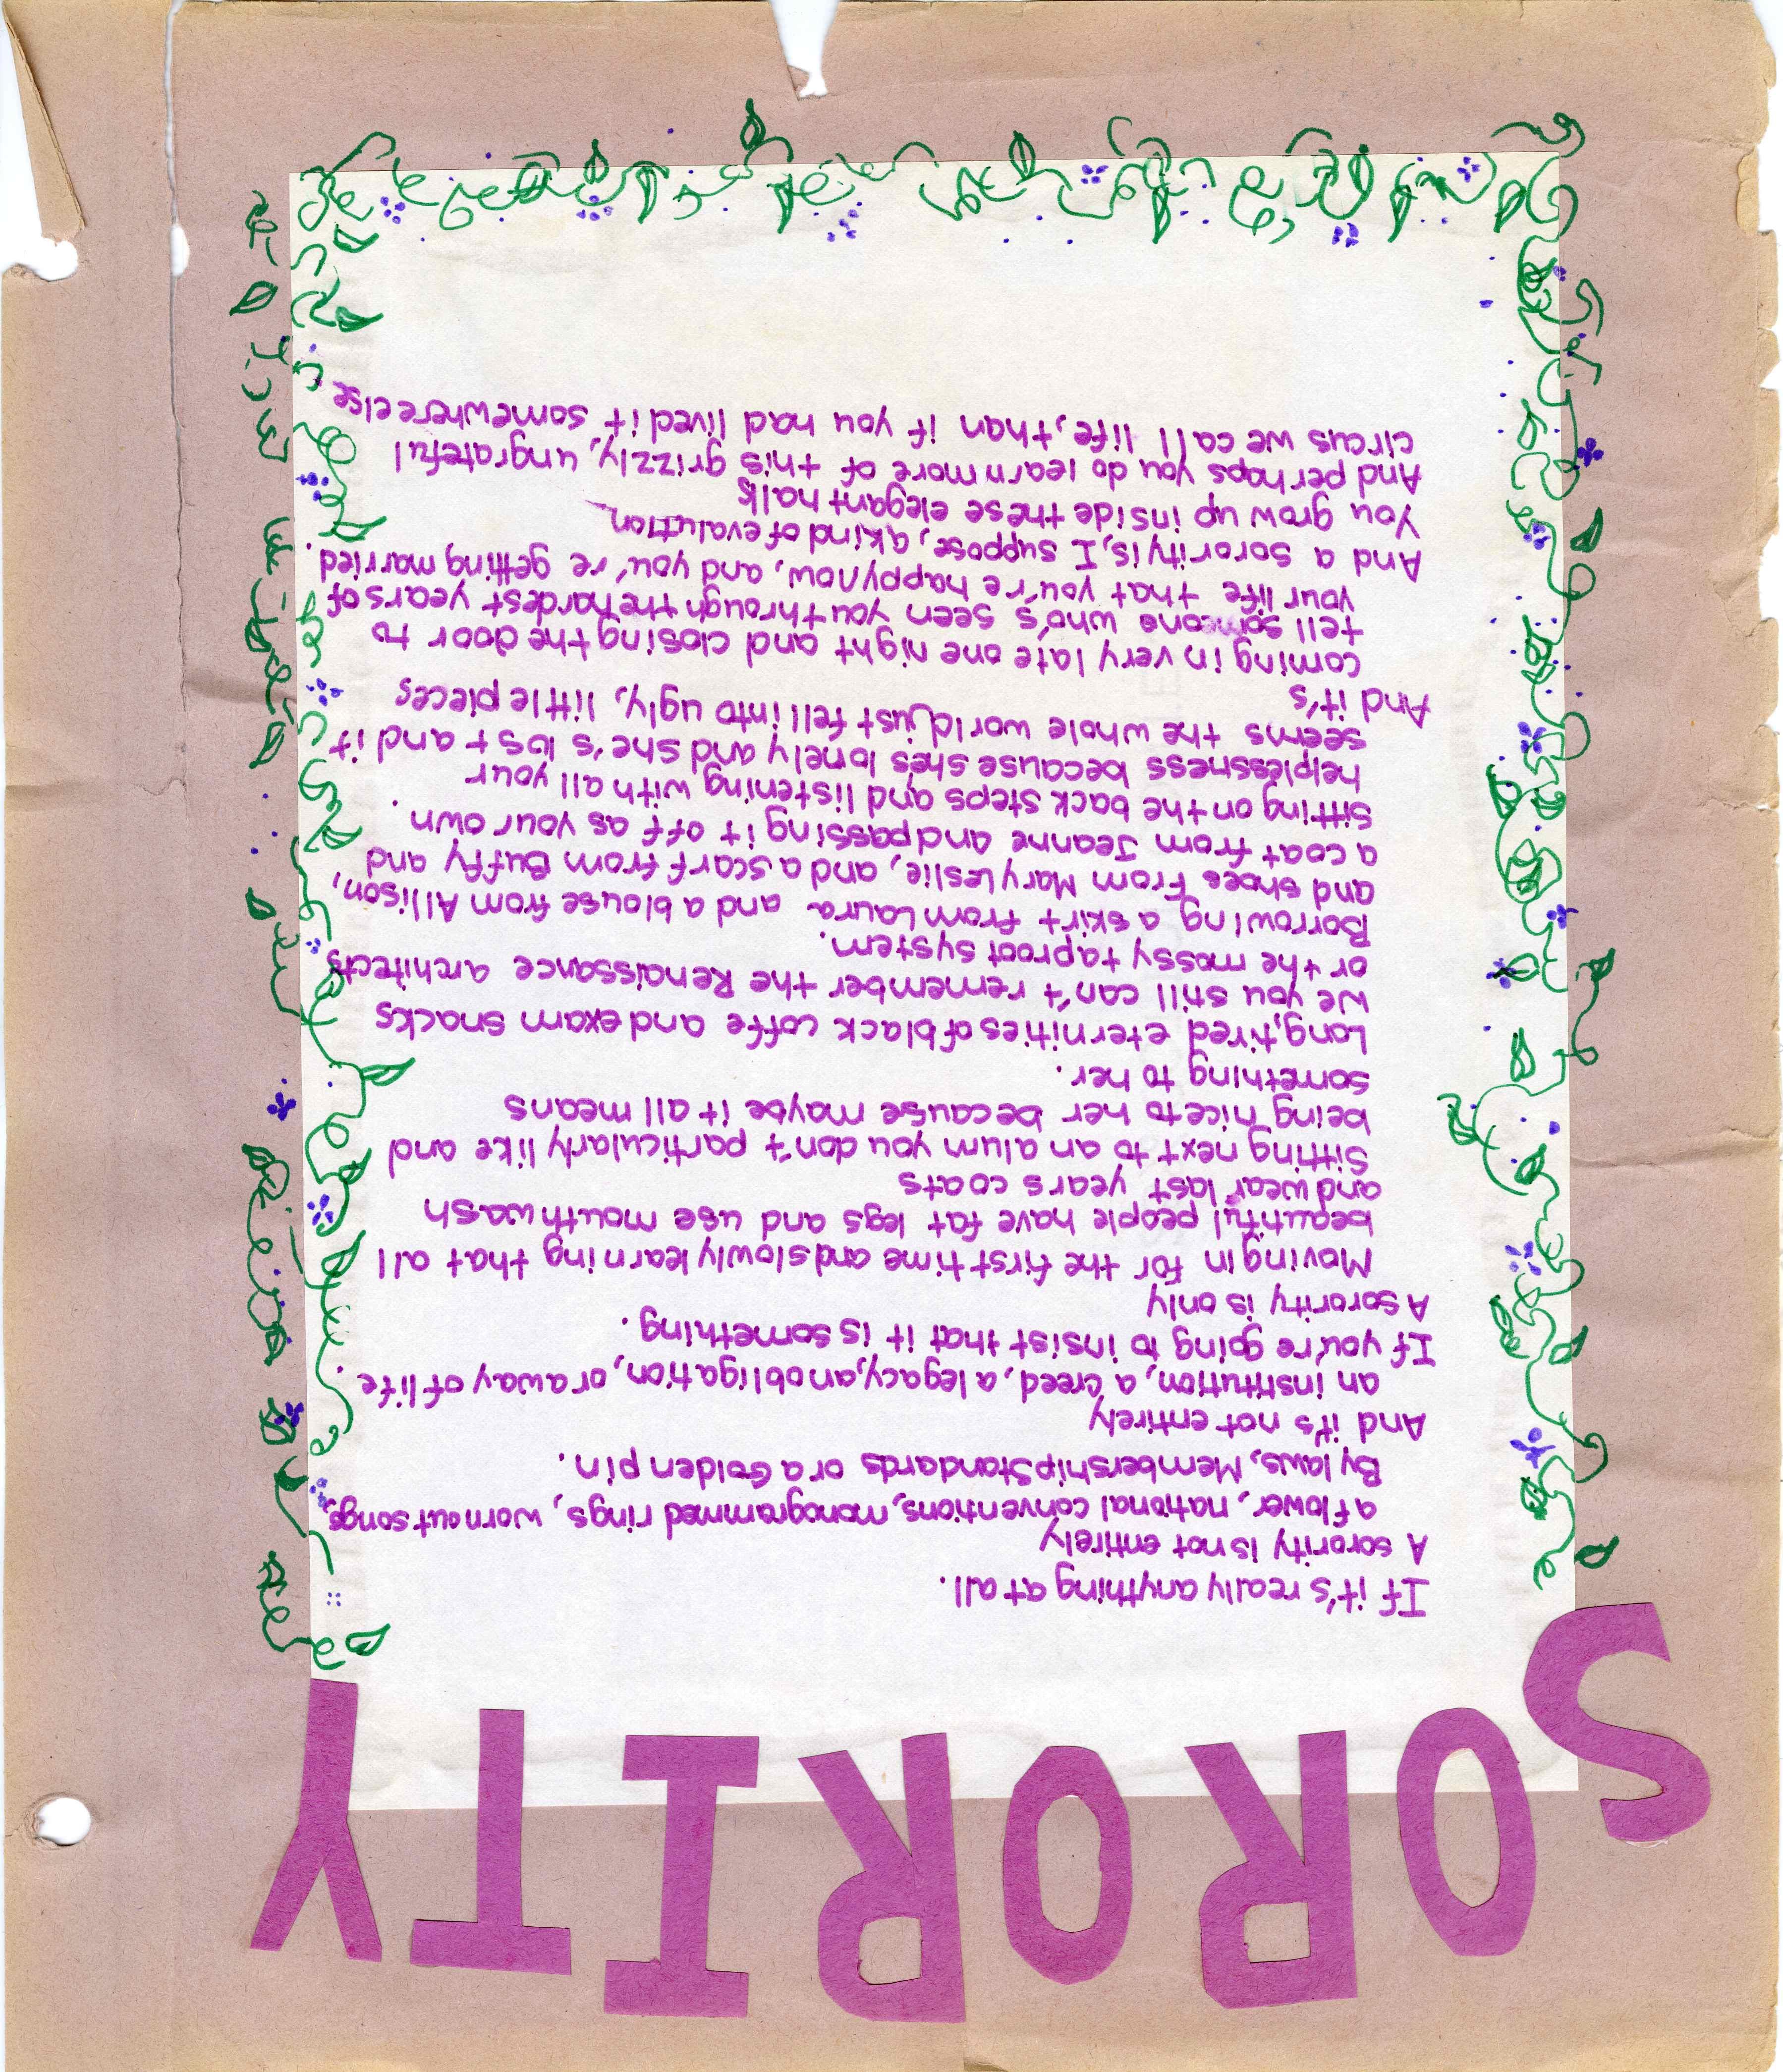 SORORITY
If it's really anything at all.
A sorority is not entirely
a flower, national conventions, monogrammed rings, worn out songs,
By laws, Membership Standards or a Golden pin.
And it's not entirely
an institution, a creed, a legacy, an obligation, or a way of life.
If you're going to insist that it is something.
A sorority is only
Moving in for the first time and slowly learning that all
beautiful people have fat legs and use mouthwash
and wear last years coats
Sitting next to an alum you don't particularly like and
being nice to her because maybe it all means
something to her.
Long, tired eternities of black coffe and exam snacks
We you still can't remember the Renaissance architects
or the mossy taproot system.
Borrowing a skirt from Laura and a blouse from Allison,
and shoes From Mary Leslie, and a scarf from Buffy and
a coat from Jeanne and passing it off as your own.
Sitting on the back steps and listening with all your
helplessness because she's lonely and she's lost and it
seems the whole world just fell into ugly, little pieces
And it's
coming in very late one night and closing the door to
tell someone who's seen you through the hardest years of
your life that you're happy now, and you're getting married.
And a sorority is, I suppose, a kind of evalution
You grow up inside these elegant halls
And perhaps you do learn more of this grizzly, ungrateful
circus we call life, than if you had lived it somewhere else